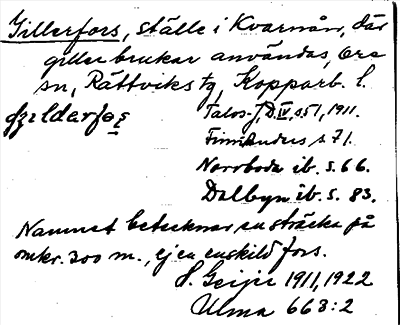 Gillerfors, ställe i Kvarnån, där
giller brukar användas, Ore
sn, Rättviks tg, Kopparb. l.
Talos-f, D. IV s 51, 1911.
Finnbundus s. 71.
Norrboda ib. s. 66.
Dalbyn ib. s. 83.
Namnet betecknar en sträcka på
omkr. 300 m., ej en enskild fors.
H. Geijer 1911, 1922
Ulma 668:2